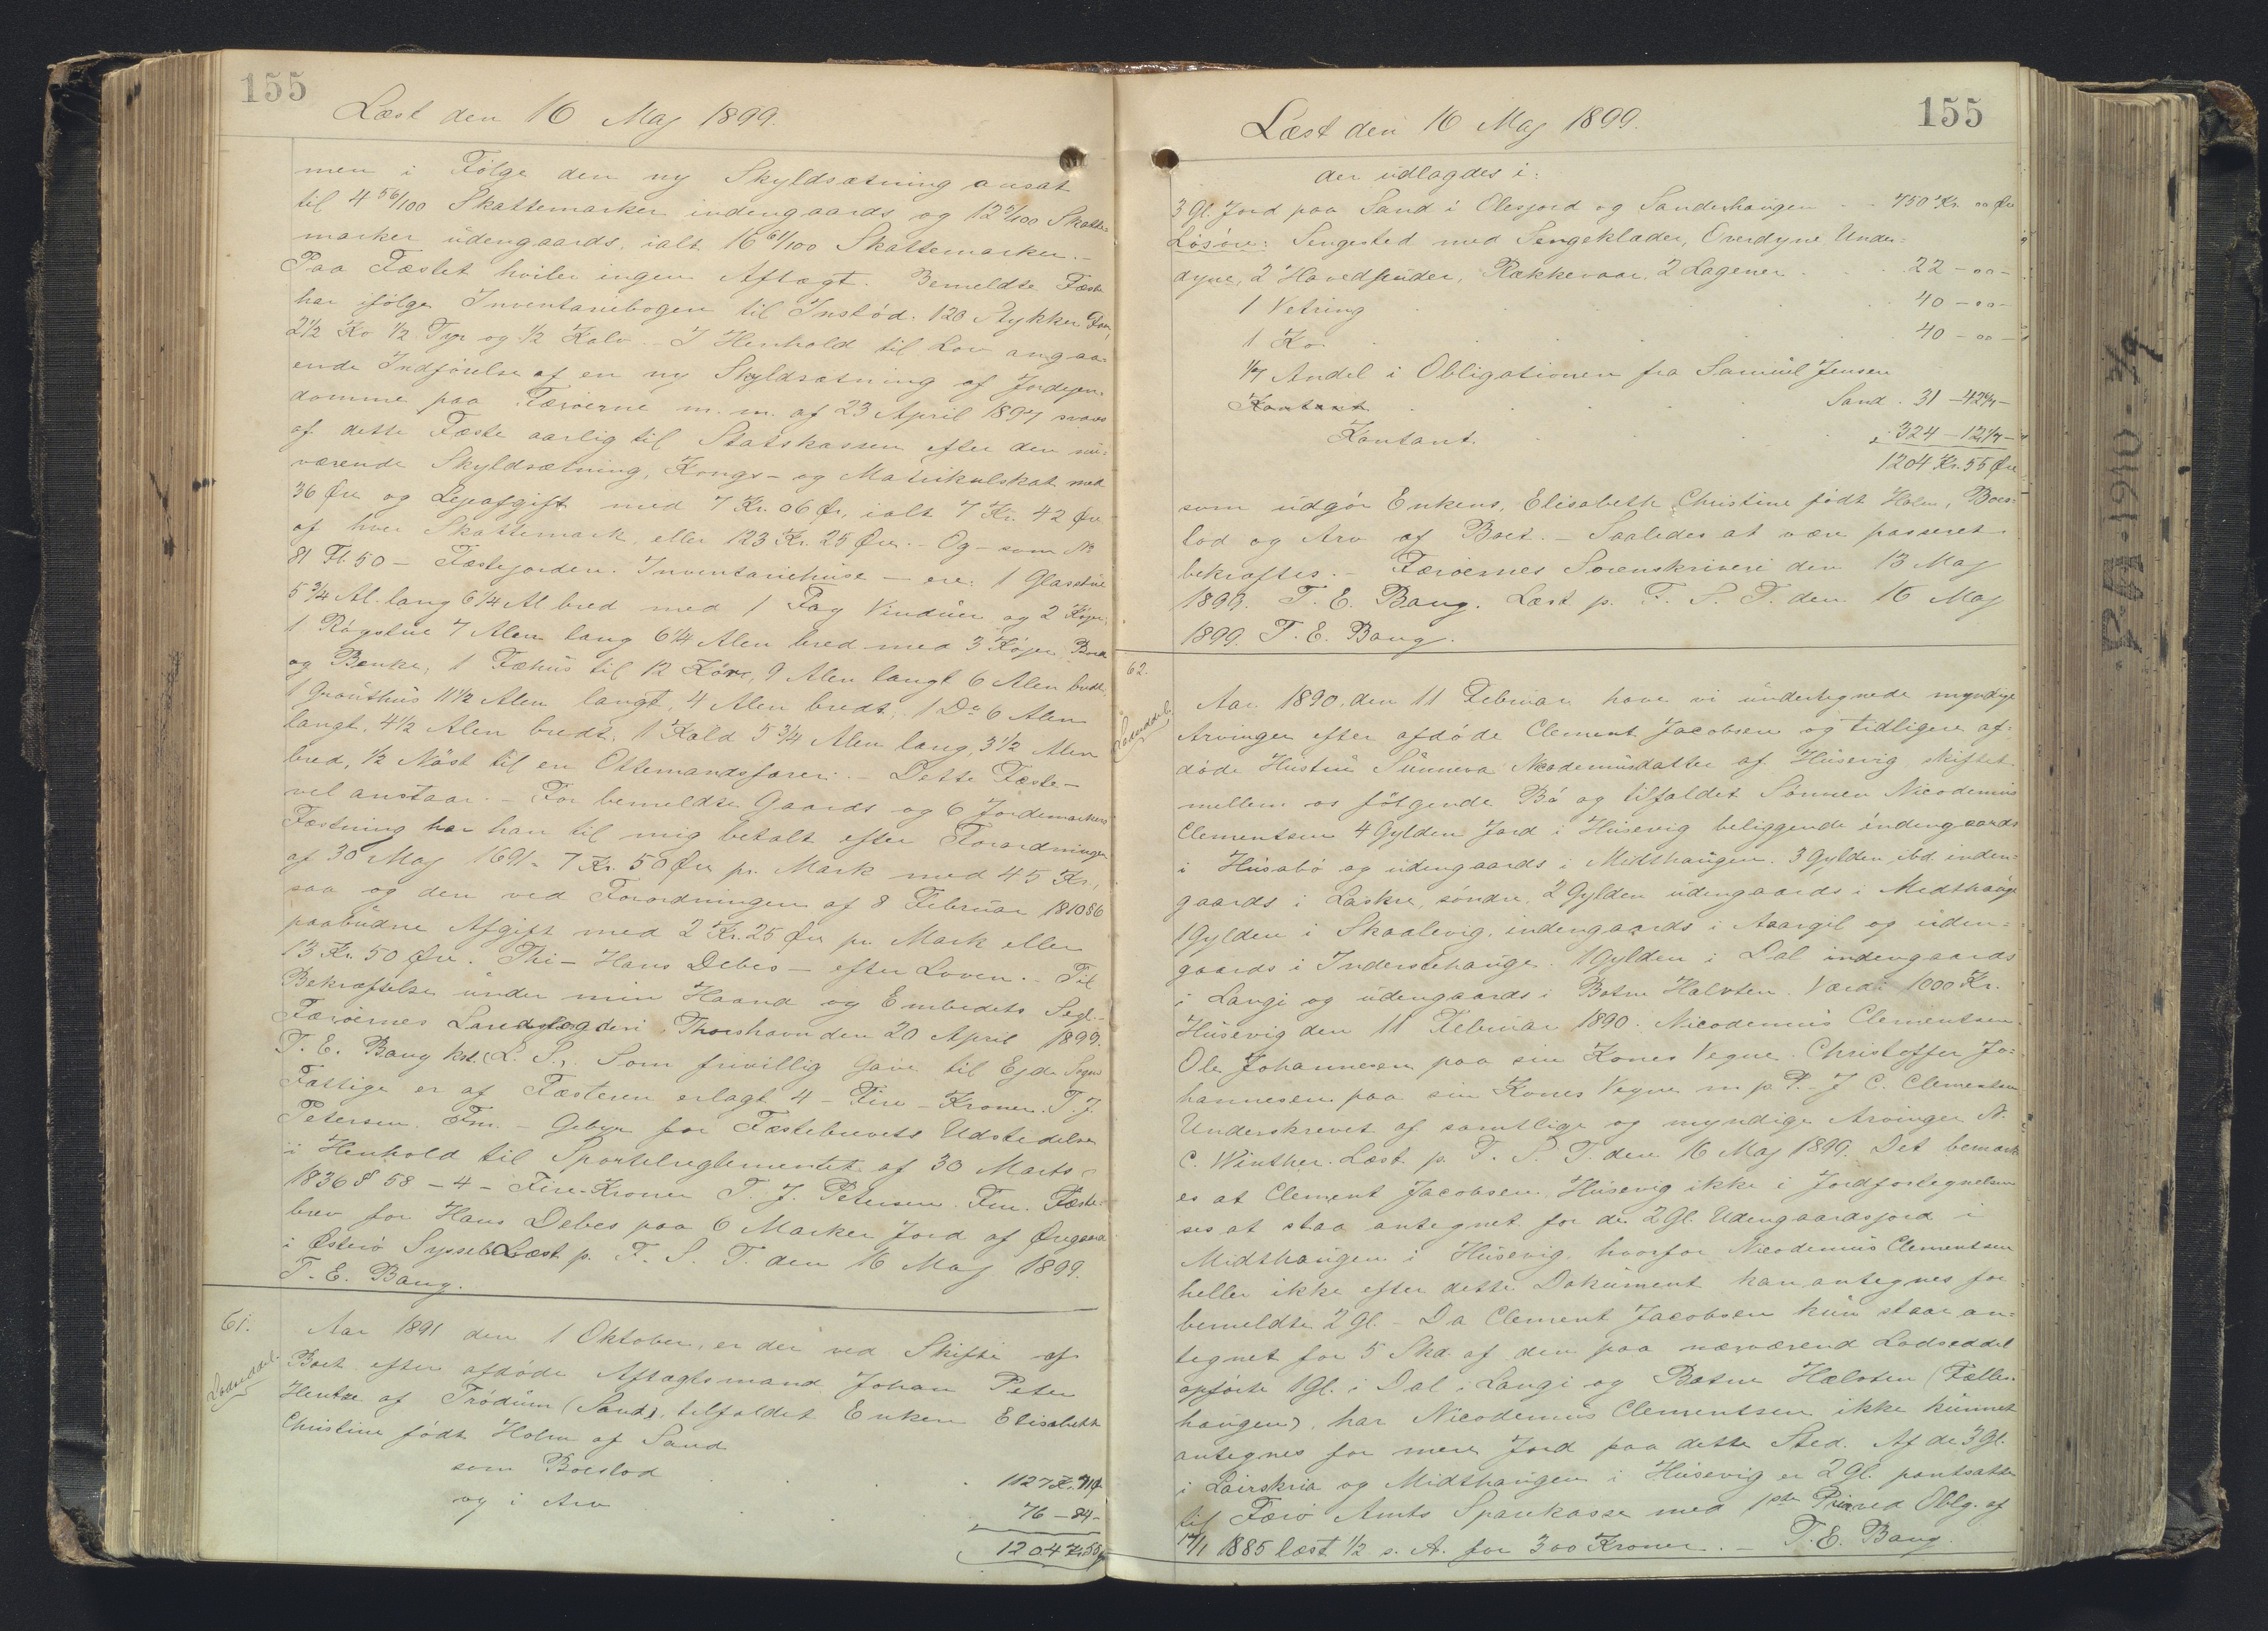 155
Læst den 16 Maj 1899.
men i Følge den ny Skyldsætning ansat
til 4 56/100 Skattemarker indengaards og 12 5/100 Skatte-
marker udengaards, ialt 16 61/100 Skattemarker. -
Paa Fæstet hviler ingen Aftægt. Bemeldte Fæste
har ifølge Inventariebogen til Instød: 120 Stykker Faar,
2 1/2 Ko 1/2 Tyr og 1/2 Kalv. I Henhold til Lov angaa-
ende Indførelse af en ny Skyldsætning af Jordejen-
domme paa Færøerne m. m. af 23 April 1897 svares
af dette Fæste aarlig til Statskassen efter den nu-
værende Skyldsætning, Kongs- og Matrikulskat med
36 Øre og Lejeafgift med 7 Kr. 06 Ør, ialt 7 Kr. 42 Øre
af hver Skattemark, eller 123 Kr. 25 Øre. - Og - som №
81 Fl. 50 - Fæstejorden. Inventariehuse - ere: 1 Glasstue
5 3/4 Al. lang 6 1/4 Al bred med 1 Fag Vinduer og 2 Køjer,
1 Røgstue 7 Alen lang 6 1/4 Alen bred med 3 Køjer Bord
og Bænke, 1 Fæhus til 12 Køer, 9 Alen langt 6 Alen bredt,
1 Grouthus 11 1/2 Alen langt, 4 Alen bredt, 1 Do 6 Alen
langt, 4 1/2 Alen bredt, 1 Kald 5 3/4 Alen lang, 3 1/2 Alen
bred, 1/2 Nöst til en Ottemandsfarer. - Dette Fæste-
vel anstaar. - For bemeldte Gaards og 6 Jordemarkers
Fæstning har han til mig betalt efter Forordningen
af 30 Maj 1691 - 7 Kr. 50 Øre pr. Mark med 45 Kr,
saa og den ved Forordningen af 8 Februar 1810 §6
paabudne Afgift med 2 Kr. 25 Øre pr Mark eller
13 Kr. 50 Øre. Thi - Hans Debes - efter Loven. - Til
Bekræftelse under min Haand og Embedets Segl. -
Færøernes Landfogderi, Thorshavn den 20 April 1899.
T. E. Bang kst. (L. S.). Som frivillig Gave til Ejde Sogns
Fattige er af Fæsteren erlagt 4 - Fire - Kroner. T. J.
Petersen. Fm. - Gebyr for Fæstebrevets Udstedelse
i Henhold til Sportelreglementet af 30 Marts
1836 § 58 - 4 - Fire - Kroner T. J. Petersen. Fm. Fæste-
brev for Hans Debes paa 6 Marker Jord af Øregaard
i Østerø Syssel. Læst p. F. S. T. den 16 Maj 1899.
T. E. Bang.
61.
Lodseddel.
Aar 1891 den 1 Oktober, er der ved Skifte af
Boet efter afdøde Aftægtsmand Johan Peter
Hentze af Trødum (Sand), tilfaldet Enken Elisabeth
Christine født Holm af Sand
som Boeslod 1127 Kr. 71 Ø
og i Arv 76 - 84 -
1204 Kr 55 Ø
155
Læst den 16 Maj 1899.
der udlagdes i:
3 Gl. Jord paa Sand i Olesjord og Sandeshaugen - - 750 Kr. 00 Øre
Løsøre: Sengested med Sengeklæder, Overdyne, Under-
dyne, 2 Hovedpuder, Rækkevaar, 2 Lagener 22 - 00 -
1 Vetring 40 - 00 -
1 Ko 40 - 00 -
1/7 Andel i Obligationen fra Samuel Jensen
Kontant Sand. 31 - 42 6/7 -
Kontant. 324 - 12 1/7 -
1204 Kr. 55 Øre
som udgør Enkens, Elisabeth Christine født Holm, Boes-
lod og Arv af Boet. - Saaledes at være passeret
bekræftes. - Færøernes Sorenskriveri den 13 Maj
1899. T. E. Bang. Læst p. F. S. T. den 16 Maj
1899. T. E. Bang.
62.
Lodseddel.
Aar 1890, den 11 Februar have vi undertegnede myndige
Arvinger efter afdøde Clement Jacobsen og tidligere af-
døde Hustru Sunneva Nicodemusdatter af Husevig skiftet
mellem os følgende Bö og tilfaldet Sønnen Nicodemus
Clementsen 4 Gylden Jord i Husevig beliggende indengaards
i Husabö og udengaards i Midthaugen. 3 Gylden ibd. inden-
gaards i Laskre, søndre, 2 Gylden udengaards i Midthauge
1 Gylden i Skaalevig, indengaards i Aaargil og uden-
gaards i Inderstehauge. 1 Gylden i Dal indengaards
i Langi og udengaards i Botne Halvten. Værdi 1000 Kr.
Husevig den 11 Februar 1890. Nicodemus Clementsen.
Ole Johannesen paa sin Kones Vegne. Christoffer Jo-
hannesen paa sin Kones Vegne m. p. P. J. C. Clementsen
Underskrevet af samtlige og myndige Arvinger N.
C. Winther. Læst p. F. S. T. den 16 Maj 1899. Det bemærk
es at Clement Jacobsen, Husevig ikke i Jordfortegnelsen
ses at staa antegnet for de 2 Gl. Udengaardsjord i
Midthaugen i Husevig, hvorfor Nicodemus Clementsen
heller ikke efter dette Dokument kan antegnes for
bemeldte 2 Gl. - Da Clement Jacobsen kun staar an-
tegnet for 5 Skd. af den paa nærværend Lodseddel
opførte 1 Gl. i Dal i Langi og Botne Halvten (Fælles-
haugen), har Nicodemus Clementsen ikke kunnet
antegnes for mere Jord paa dette Sted. Af de 3 Gl.
i Lairskria og Midthaugen i Husevig er 2 Gl. pantsatte
til Færø Amts Sparekasse med 1ste Prior ved Oblg. af
17/1 1885 læst 1/2 s. A. for 300 Kroner. - T. E. Bang.